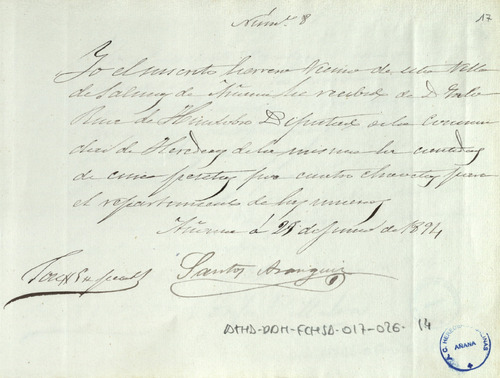 Núm.º 8
17
Yo el suscrito herrero Vecino de esta Villa
de Salinas de Añana he recibido de D.
Ruiz de Diputado de la Comuni
dad de Herederos de la misma la cantidad
de cinco pesetas por cuatro chavetas para
el repartimiento de las mueras
Añana á 25 de Junio de 1894
Santos Aranguiz
14
AÑANA